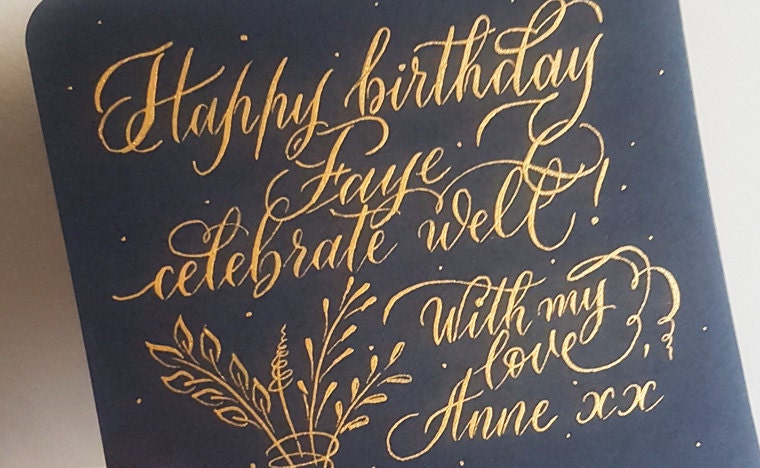 Happy birthday
Faye.
celebrate well!
With my
love,
Anne xx